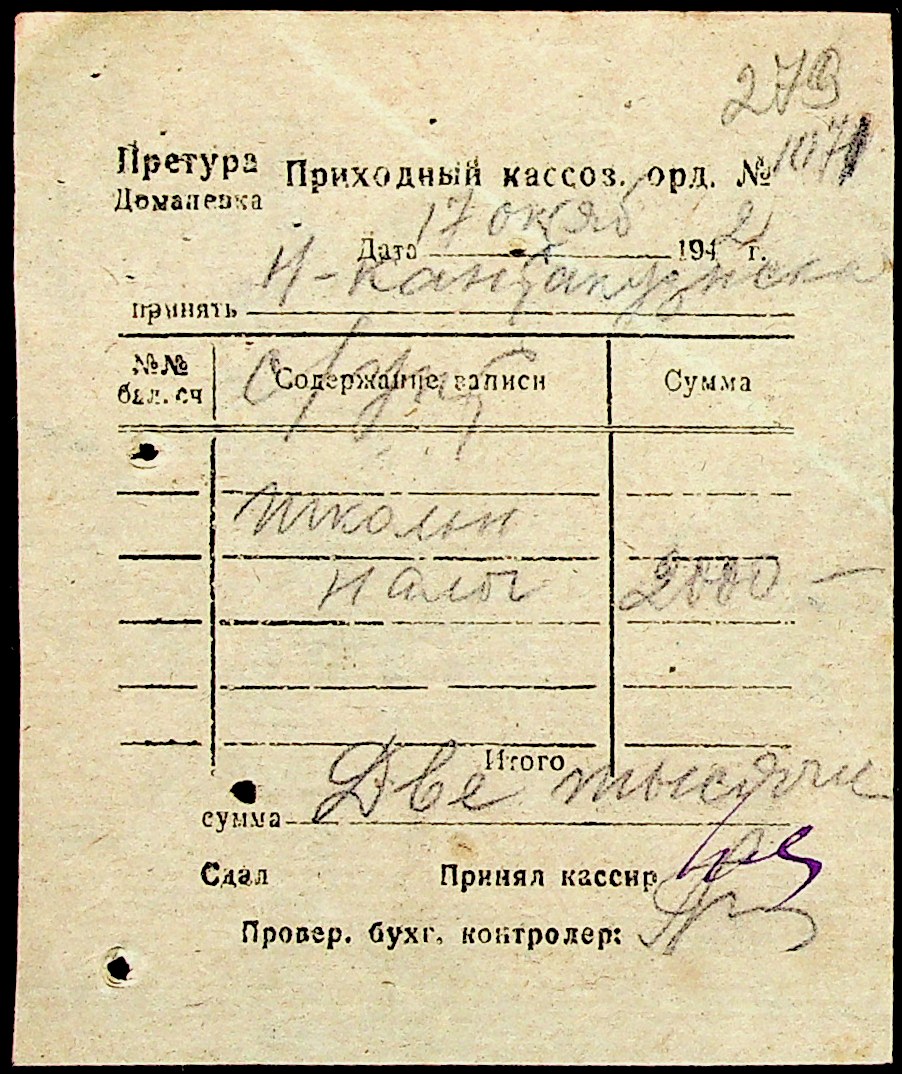 279
Претура Приходный кассов. орд. № 1071
Доманевка
Дата 17 окяб 1942 г.
принять Н-Кантакузенска
№№ бал. сч Содержание записи Сумма
школьн
налог 2000 –
Итого
сумма Две тысячи
Сдал Принял кассир
Провер. бухг. контролер: